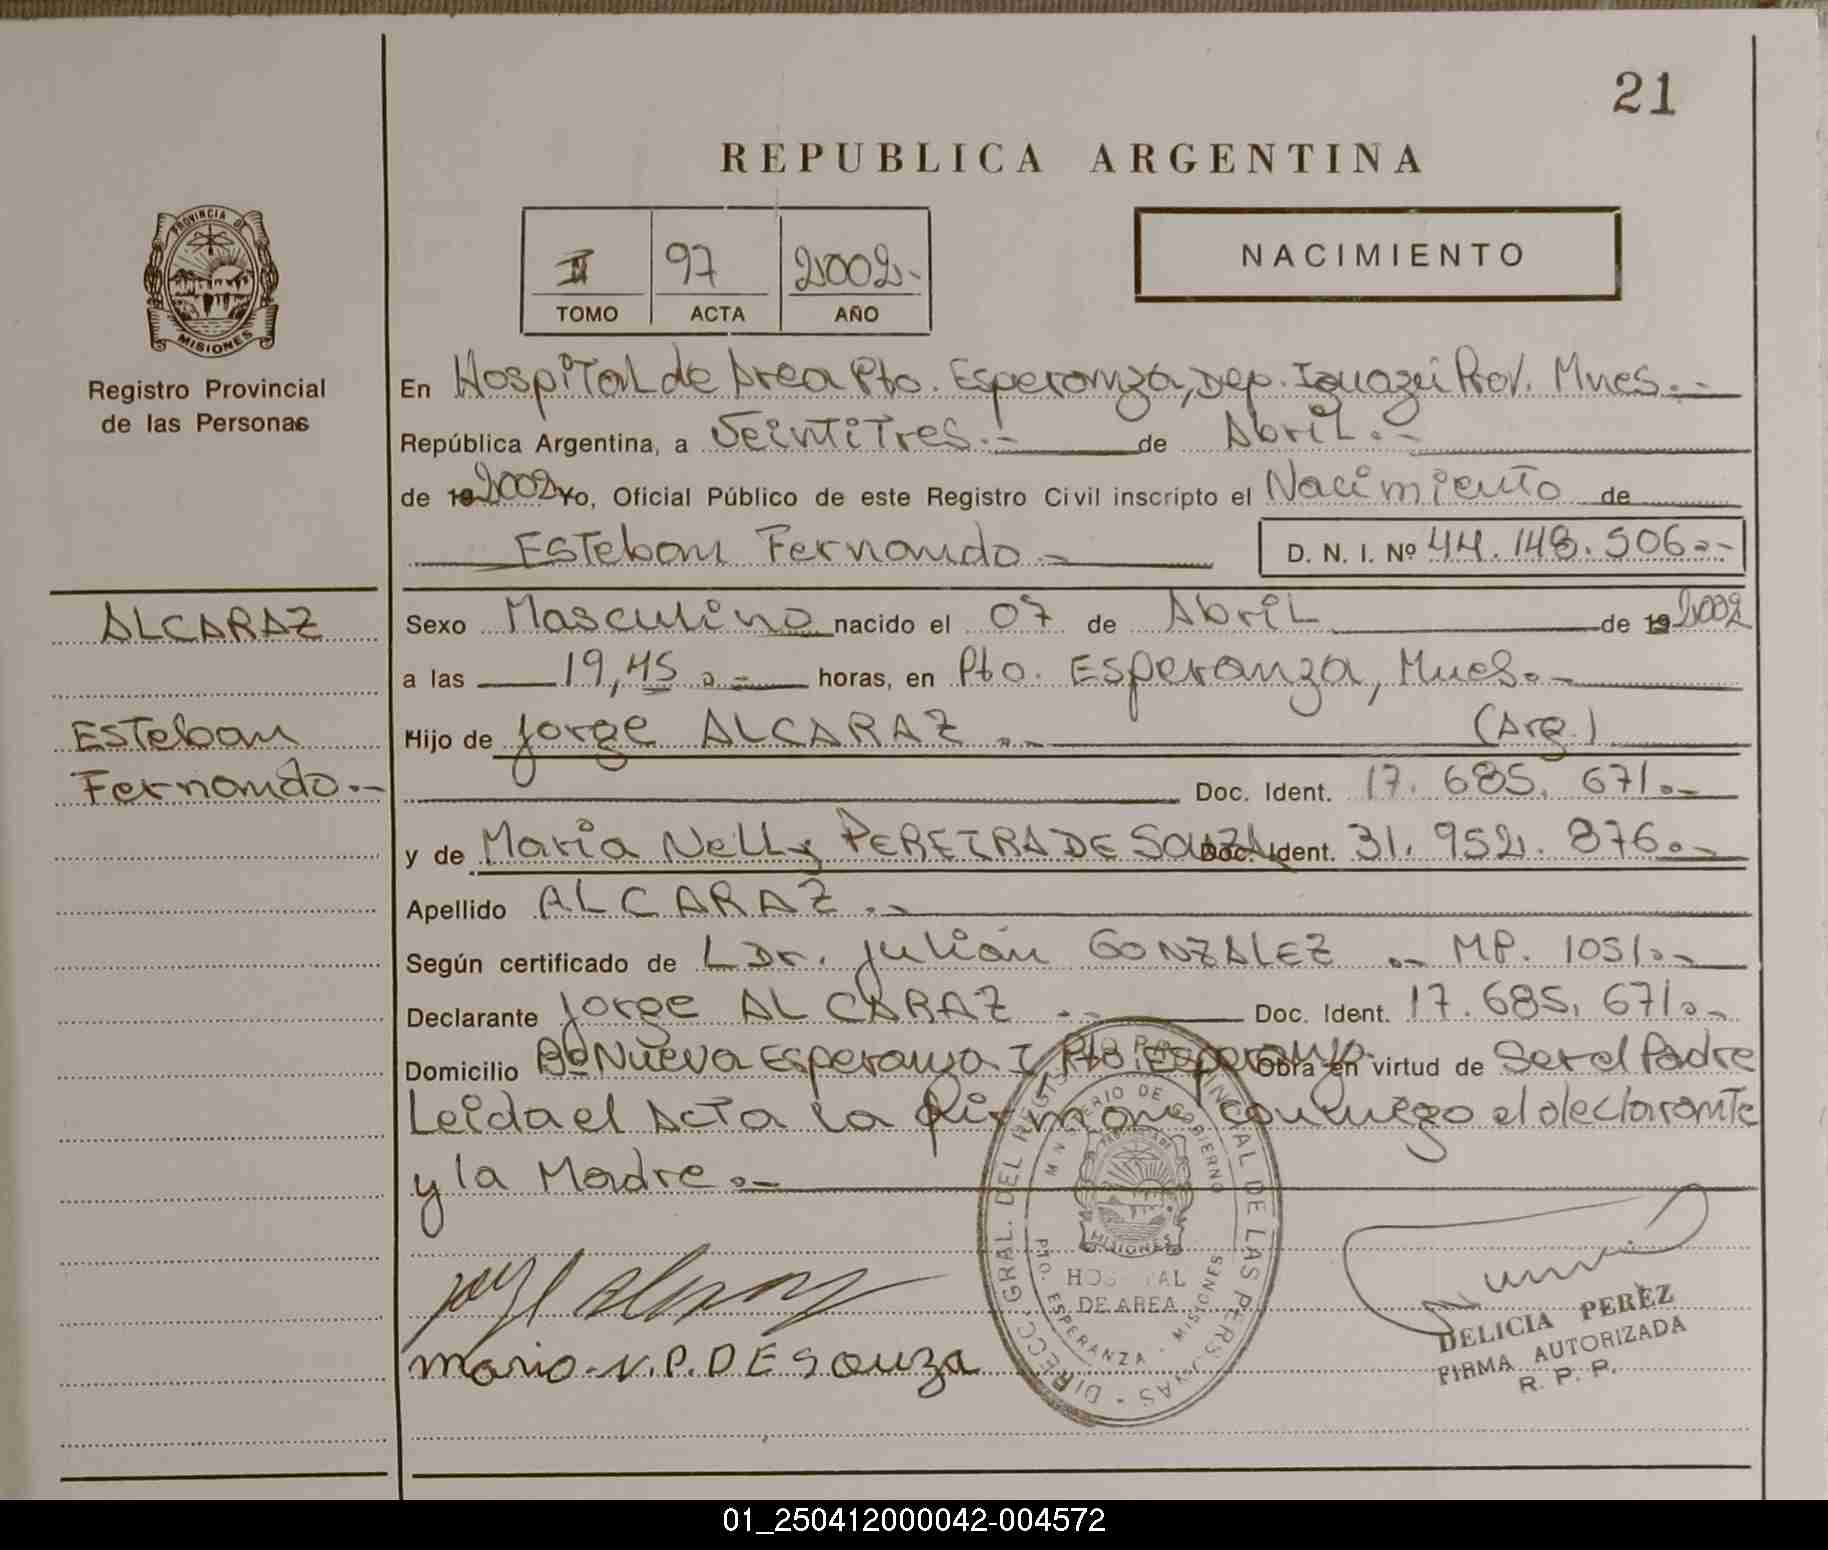 21
REPUBLICA ARGENTINA
PROVINCIA DE
MISIONES
Registro Provincial
de las Personas
II 97 2002.-
TOMO ACTA AÑO
NACIMIENTO
En Hospital de Area Pto. Esperanza, Dep. Iguazú Prov. Mnes.-
República Argentina, a Veintitres.- de Abril.-
de 19 2002 Yo, Oficial Público de este Registro Civil inscripto el Nacimiento de
Esteban Fernando.- D. N. I. Nº 44.148.506.-
ALCARAZ
Esteban
Fernando.-
Sexo Masculino nacido el 07 de Abril de 19 2002
a las 19,45.- horas, en Pto. Esperanza, Mnes.-
Hijo de Jorge ALCARAZ.- (Arg.)
Doc. Ident. 17.685.671.-
y de Maria Nelly PEREIRA DE SOUZA Doc. Ident. 31.952.876.-
Apellido ALCARAZ.-
Según certificado de L Dr. Julián GONZALEZ.- MP. 1051.-
Declarante Jorge ALCARAZ.- Doc. Ident. 17.685.671.-
Domicilio Bº Nueva Esperanza I, Pto Esperanza. Obra en virtud de Ser el Padre
Leida el Acta la firman conmigo el declarante
y la Madre.-
DIRECC. GRAL. DEL REGISTRO PROVINCIAL DE LAS PERSONAS
MINISTERIO DE GOBIERNO
MISIONES
HOSPITAL
DE AREA
PTO. ESPERANZA - MISIONES
maria. N. P. DE Souza
DELICIA PEREZ
FIRMA AUTORIZADA
R. P. P.
01_250412000042-004572